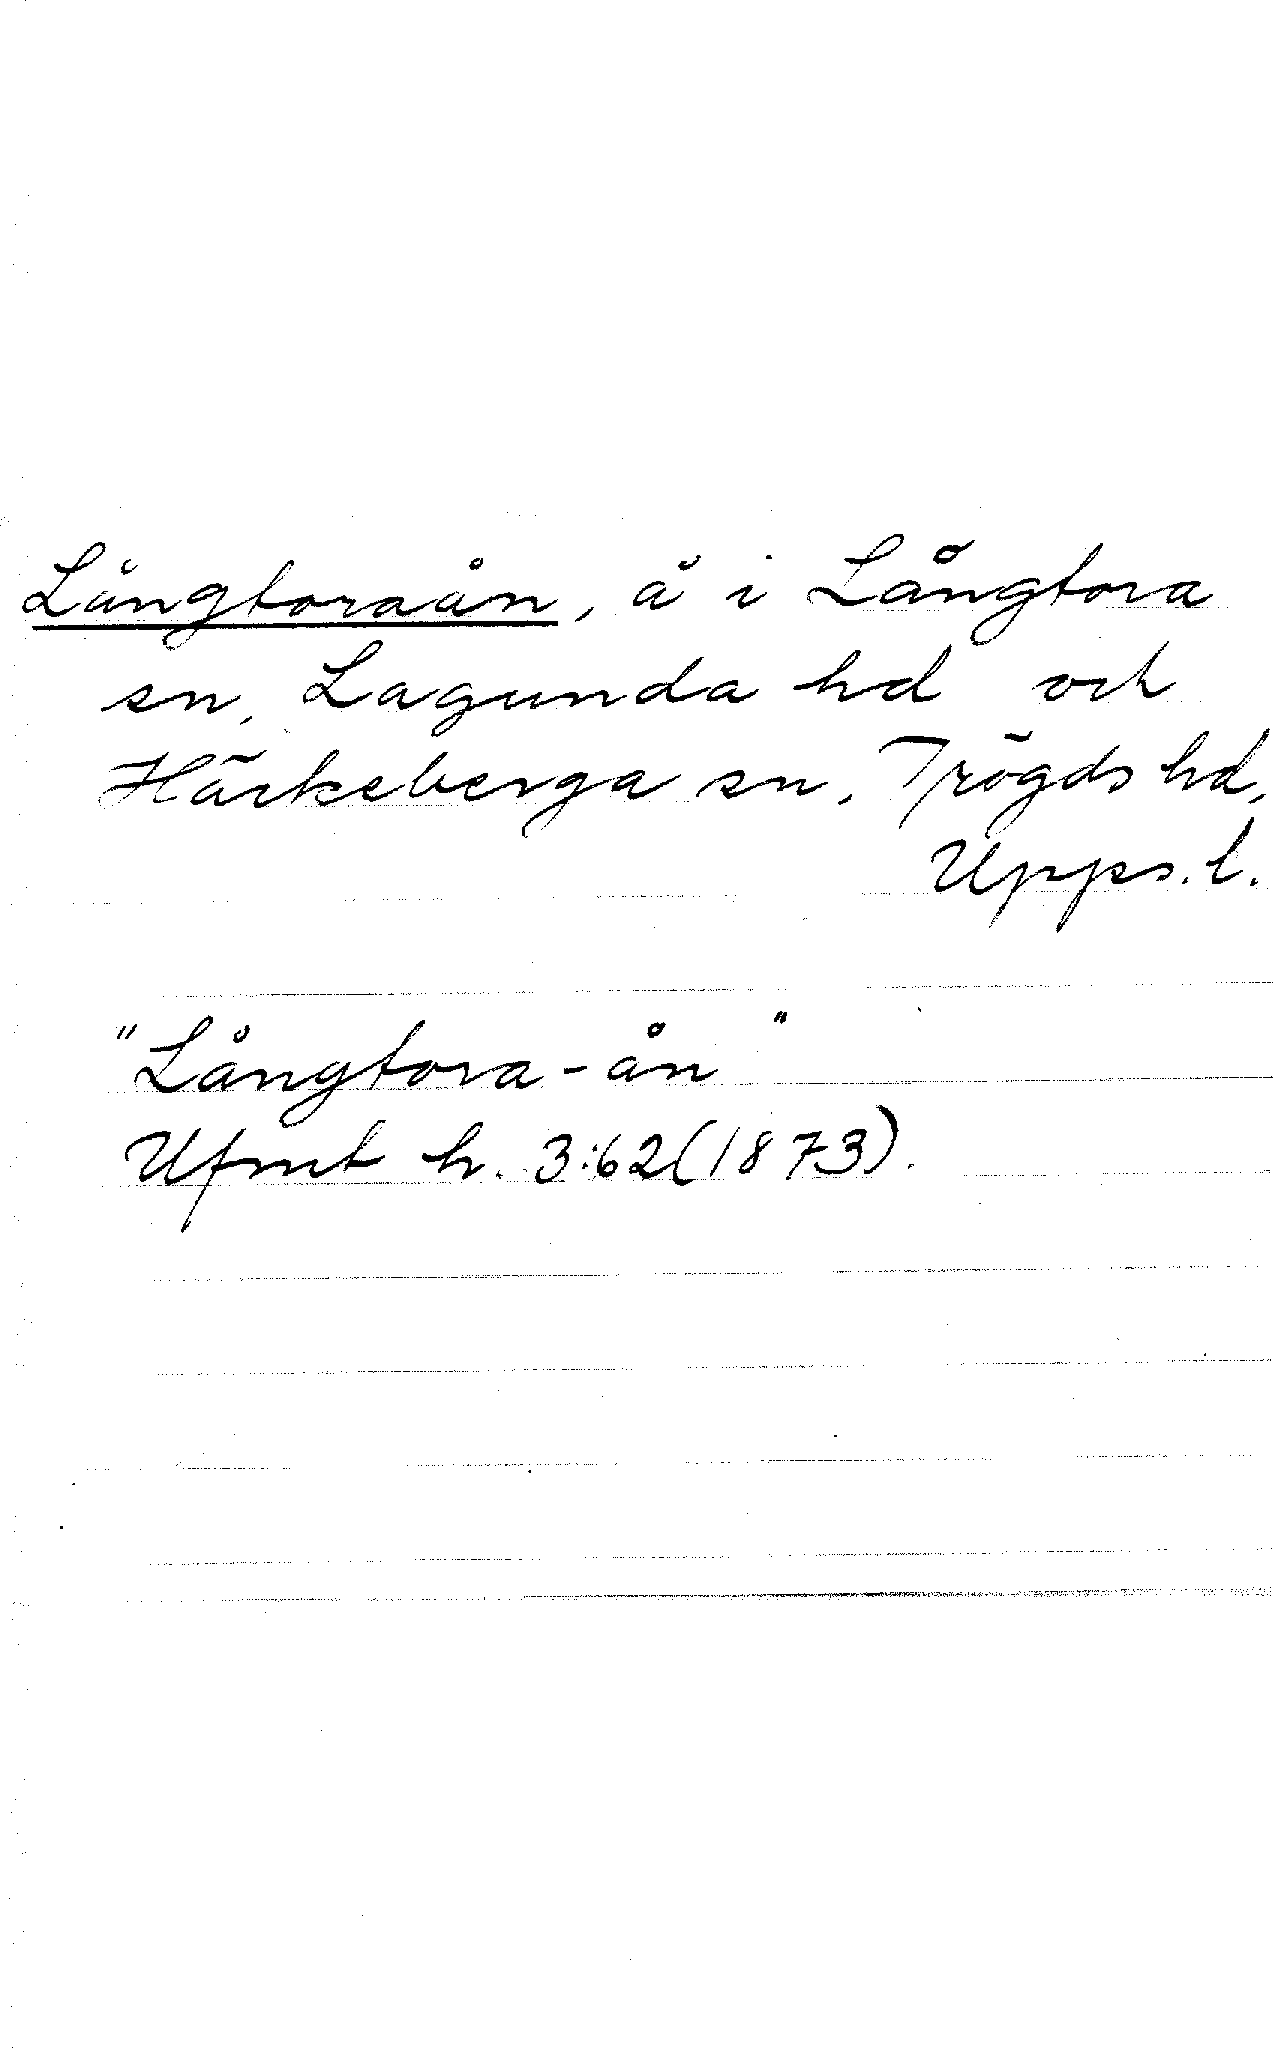 Långtoraån, å i Långtora
sn, Lagunda hd och
Härkeberga sn, Trögds hd,
Upps. l.
"Långtora-ån"
Ufmt h. 3:62 (1873).